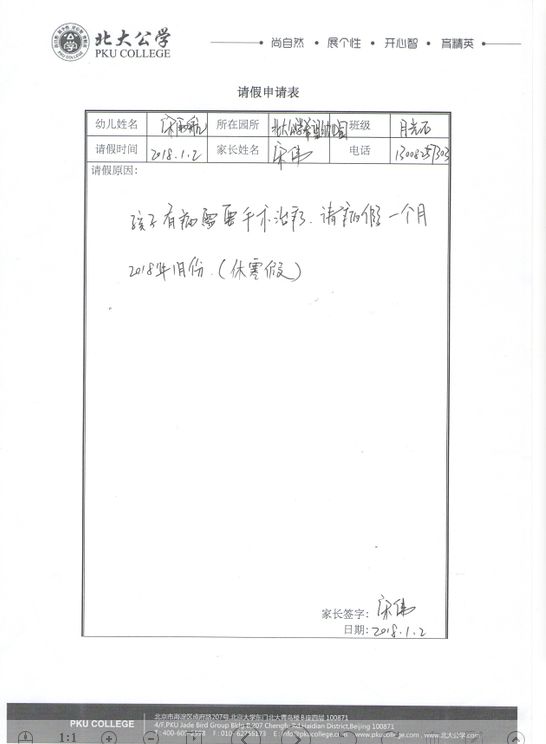 北大公学
PKU COLLEGE
尚自然 • 展个性 • 开心智 • 育精英
请假申请表
幼儿姓名 宋 所在园所 北大公学 幼儿园 班级 月光石
请假时间 2018.1.2 家长姓名 宋伟 电话
请假原因：
孩子有病需要手术治疗．请 假一个月
2018年1月份．（休寒假）
家长签字：宋伟
日期：2018.1.2
PKU COLLEGE
北京市海淀区成府路207号,北京大学东门北大青鸟楼B接四层 100871
4/F,PKU Jade Bird Group Bldg B,207 Chengfu Rd,Haidian District,Beijing 100871
www.pkucollege.com . www.北大公学.com
1:1